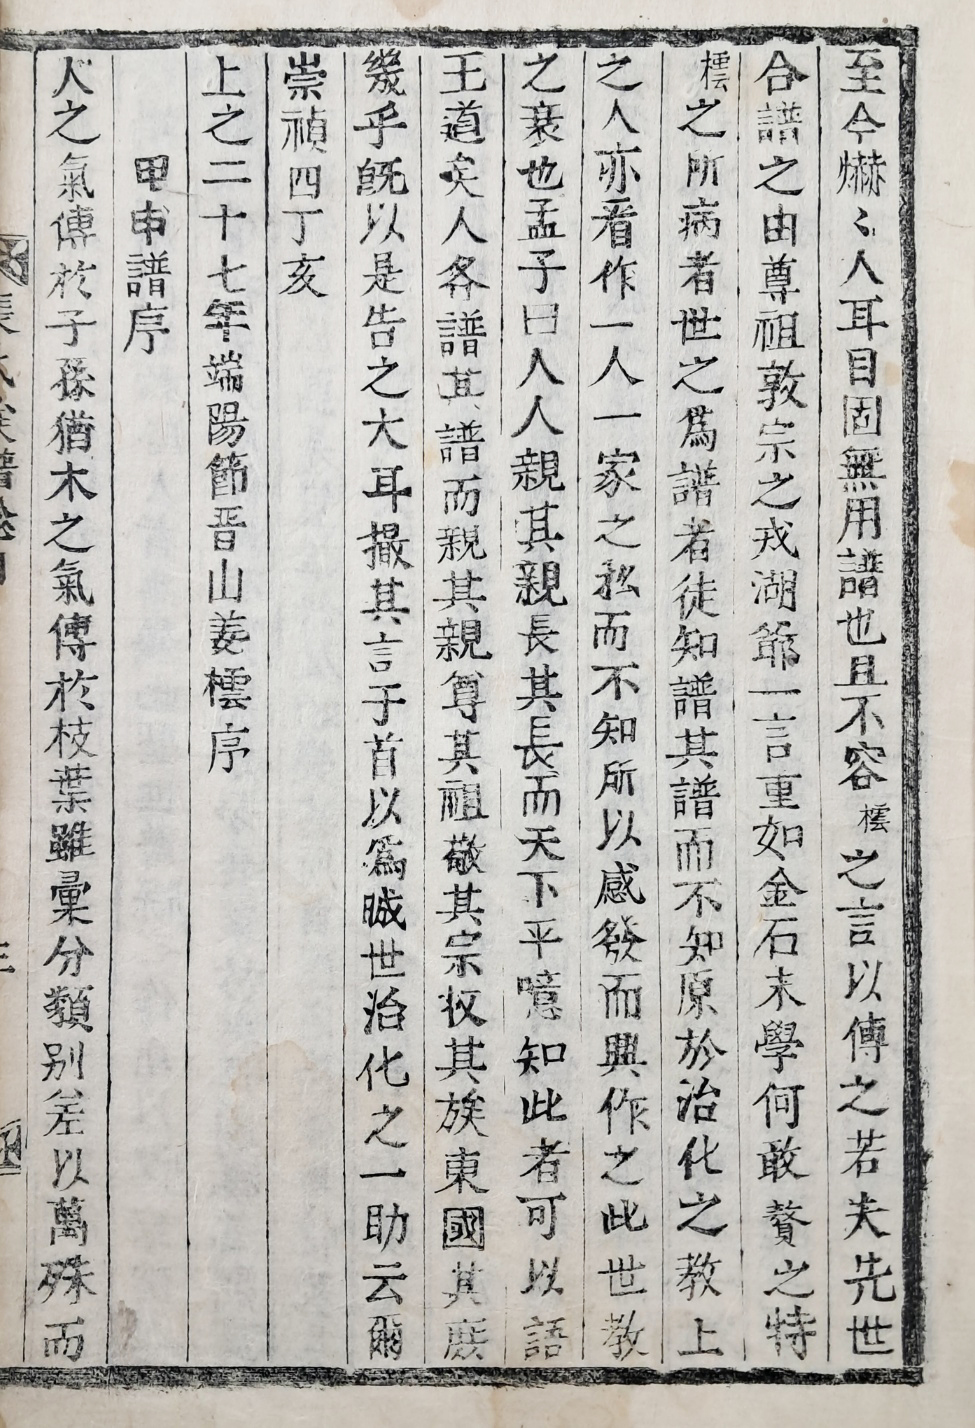 至今爀〻人耳目固無用譜也且不容橒之言以傳之若夫先世
合譜之由尊祖敦宗之戎湖爺一言重如金石末學何敢贅之特
橒之所病者世之爲譜者徒知譜其譜而不知原於治化之教上
之人亦看作一人一家之私而不知所以感發而興作之此世教
之衰也孟子曰人人親其親長其長而天下平噫知此者可以語
王道矣人各譜其譜而親其親尊其祖敬其宗收其族東國其庶
幾乎旣以是告之大耳撮其言于首以爲晠世治化之一助云爾
崇禎四丁亥
上之二十七年端陽節晋山姜橒序
甲申譜序
人之氣傳於子孫猶木之氣傳於枝葉雖彙分類別差以萬殊而